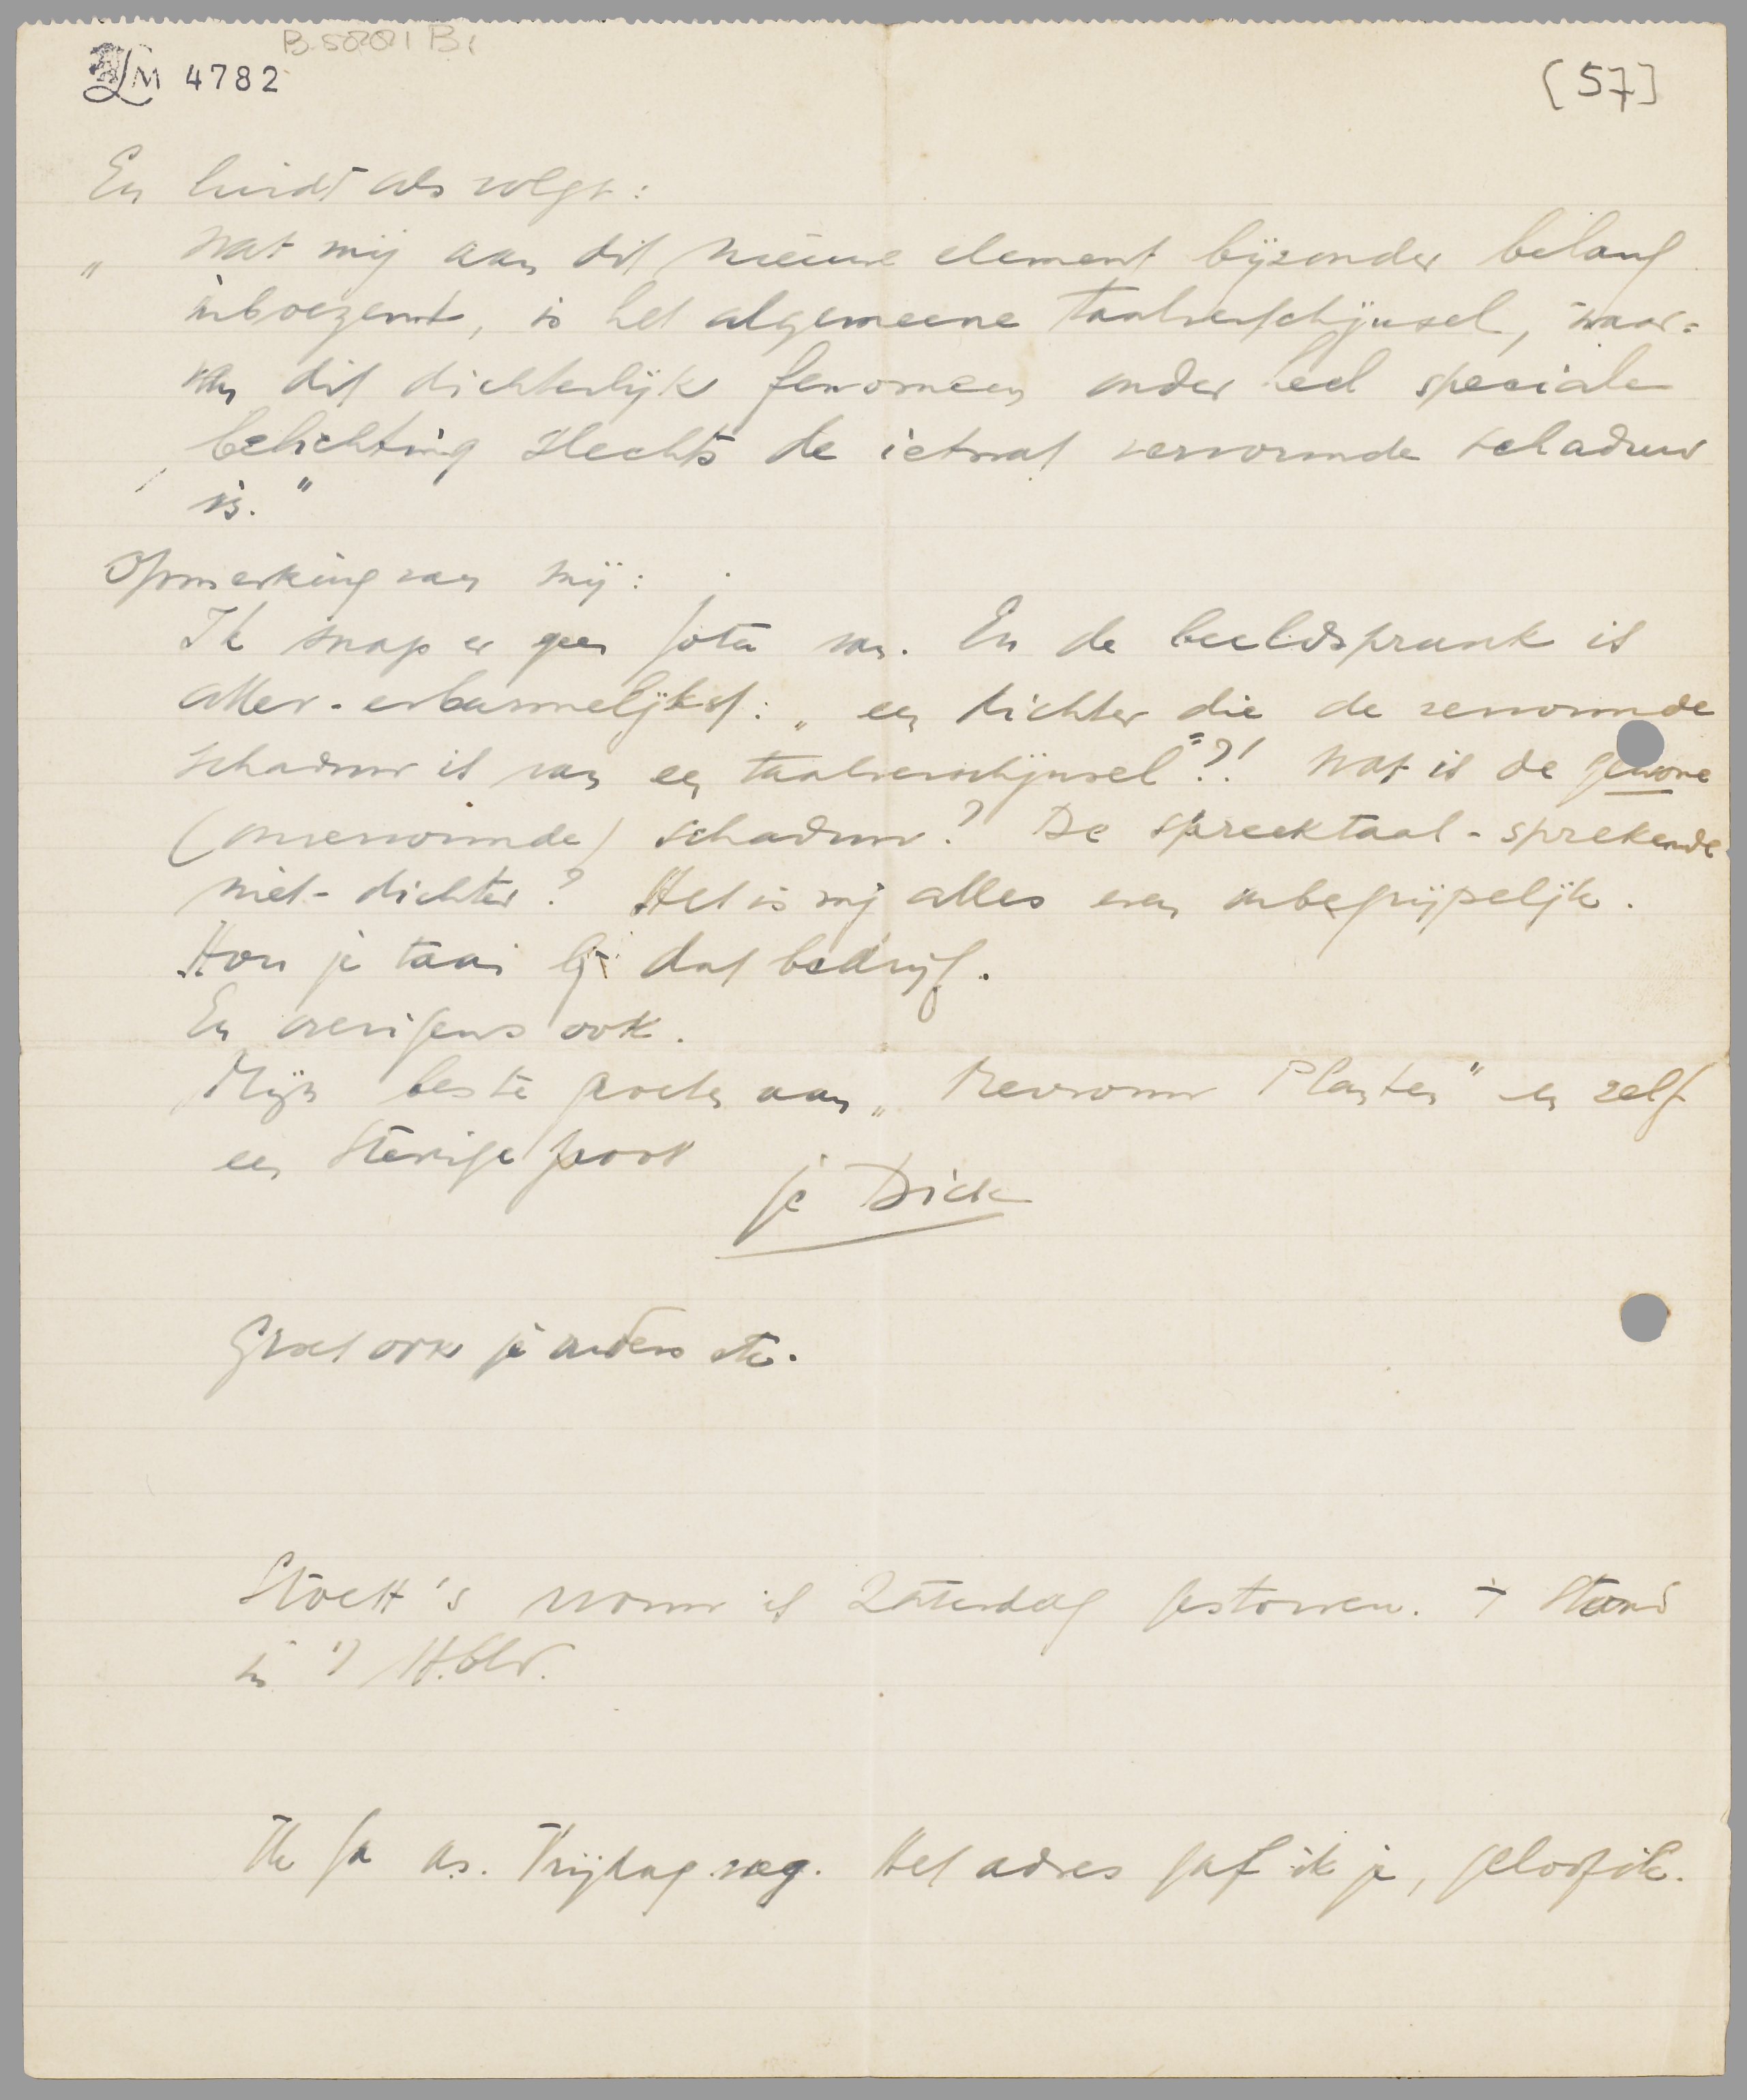 B 5081 B1
LM 4782
[57]
En luidt als volgt:
„ Wat mij aan dit nieuwe element bijzonder belang
inboezemt, is het algemeene taalverschijnsel, waar=
van dit dichterlijk fenomeen onder eel speciale
belichting slechts de ietwat vervormde schaduw
is."
Opmerking van mij:
Ik snap er geen jota van. En de beeldspraak is
aller-erbarmelijkst: „een dichter die de vervormde
schaduw is van een taalverschijnsel"?! Wat is de gewone
(onvervormde) schaduw? De spreektaal-sprekende
niet-dichter? Het is mij alles even onbegrijpelijk.
Hou je taai bij dat bedrijf.
En overigens ook.
Mijn beste groeten aan „Mevrouw Planten" en zelf
een stevige poot
je Dick
Groet ook je ouders etc.
Stoett's vrouw is Zaterdag gestorven. + Stond
in 't H.bld.
Ik ga as. Vrijdag weg. Het adres gaf ik je, geloof ik.